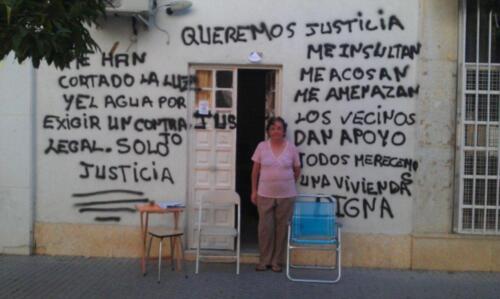 QUEREMOS JUSTICIA
ME HAN
CORTADO LA LUZ
Y EL AGUA POR
EXIGIR UN CONTRA
TO
LEGAL. SOLO
JUSTICIA
JUS
ME INSULTAN
ME ACOSAN
ME AMENAZAN
LOS VECINOS
DAN APOYO
TODOS MERECEMOS
UNA VIVIENDA
DIGNA